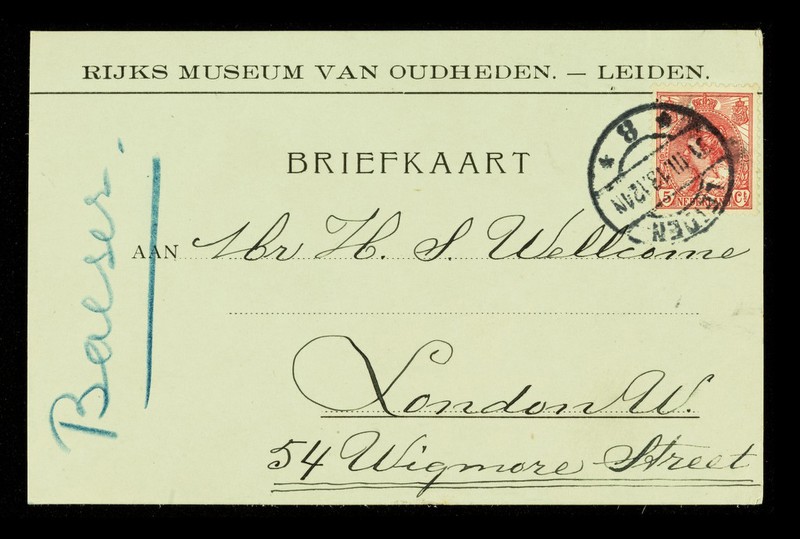 RIJKS MUSEUM VAN OUDHEDEN. — LEIDEN.
BRIEFKAART
AAN Mr H. S. Wellcome
London W.
54 Wigmore Street
8
LEIDEN
5 Ct